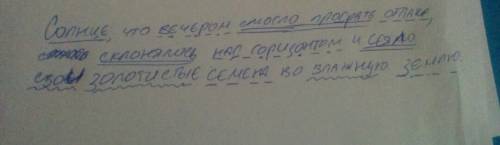 Солнце, что вечером смогло прорвать облака,
склонялось над горизонтом и сеяло
свои золотистые семена во влажную землю.